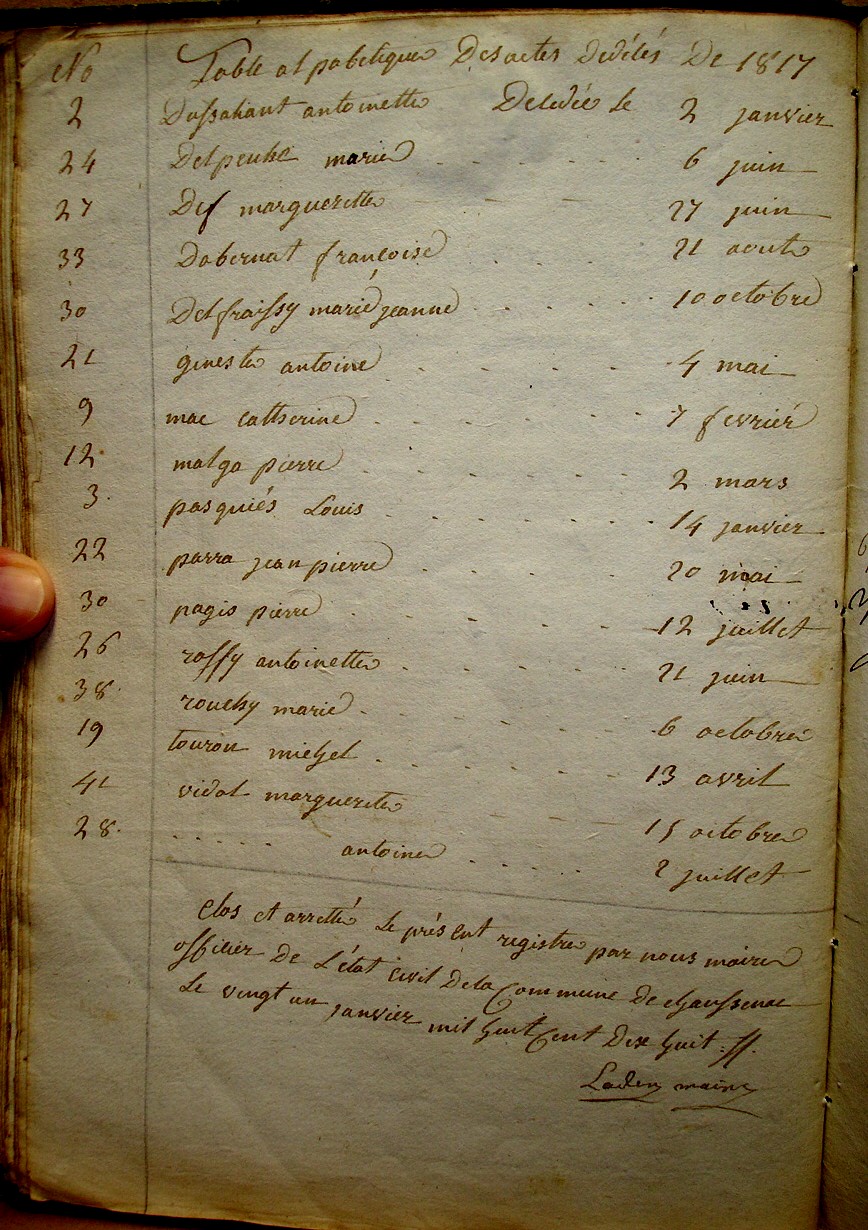 No Table alpabetique Des actes Decélés De 1817
2 Dussahant antoinette Decedée le 2 janvier
24 Delpeuhe marie 6 juin
27 Def marguerette 27 juin
33 Dabernat françoise 21 aoute
30 Delfraissy marie jeanne 10 octobre
21 gineste antoine 4 mai
9 mae catherine 7 fevrier
12 malga pierre 2 mars
3. pasquiés Louis 14 janvier
22 parra jean pierre 20 mai
30 pagis pierre 12 juillet
26 raffy antoinette 21 juin
38. rouchy marie 6 octobre
19 touron michel 13 avril
41 vidal marguerite 15 octobre
28. antoine 2 juillet
Clos et arretté le présent registre par nous maire
offisier De L'état Civil De la Commune De chaussenac
Le vingt un janvier mil huit Cent Dix huit
maire